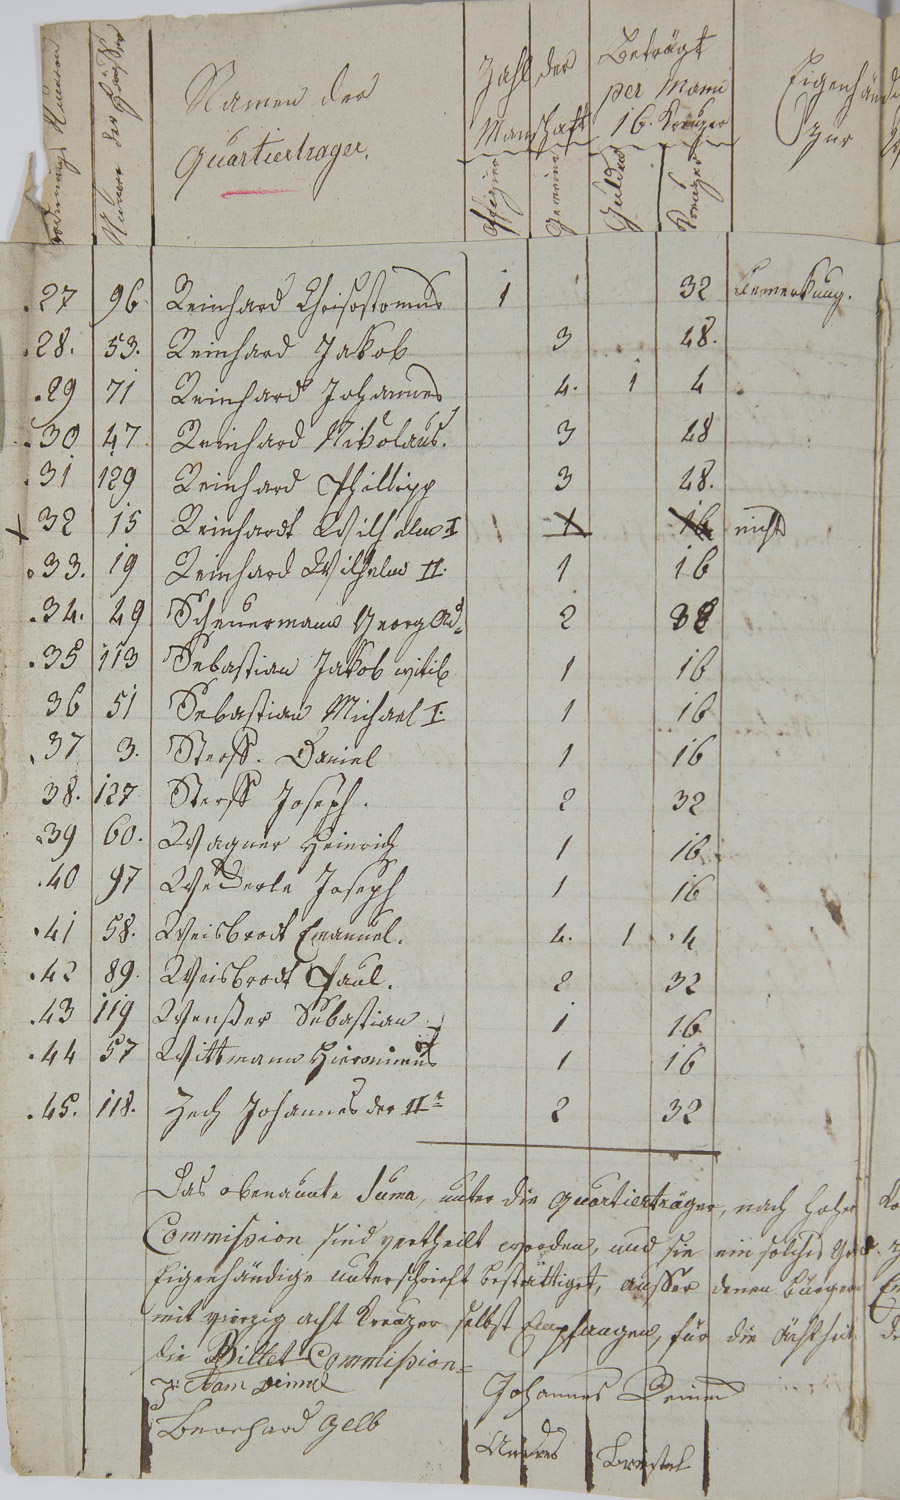 Numeron
Numero der Häußer
Namen der
Quartiertrager.
Zahl der
Manschaft
Offizier
Gemeine
Beträgt
per Mann
16. Kreuzer
Gulden
Kreuzer
Eigenhänd
Zur
.27 96 Reinhard Chrisostomus 1 32 Bemerkung.
.28. 53. Reinhard Jakob 3 48.
.29 71 Reinhard Johannes 4. 1 4
.30 47 Reinhard Nikolaus. 3 48
.31 129 Reinhard Phillipp 3 48.
x 32 15 Reinhardt Wilhelm I 1 16 nichts
.33. 19 Reinhard Wilhelm II. 1 16
.34. 49 Scheuermann Georg Ad 2 32
.35 113 Sebastian Jakob witib 1 16
36 51 Sebastian Michael I. 1 16
.37 3. Stross. Daniel 1 16
38. 127 Stross Joseph. 2 32
.39 60. Wagner Heinrich 1 16
.40 97 Wederle Joseph 1 16
.41 58. Weisbrodt Emanuel. 4. 1 4
.42 89. Weisbrodt Paul. 2 32
.43 119 Wenßer Sebastian 1 16
.44 57 Wittmann Hieronimus 1 16
.45. 118. Zech Johannes der IIt 2 32
Das obenannte Suma, unter die Quartierträger, nach hoher
Commission sind vertheilt worden, und sie ein solches
Eigenhändige unterschrieft bestättiget, ausser denen Bürger
mit vierzig acht Kreuzer selbst Empfangen, für die Ächtheit
die Billet Commission=
Johannes
Bernhard Gelb
Andres